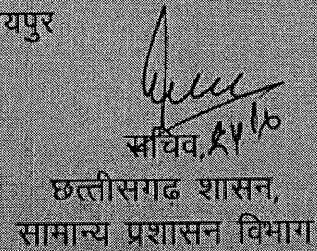 यपुर
सचिव,
छत्तीसगढ शासन,
सामान्य प्रशासन विभाग